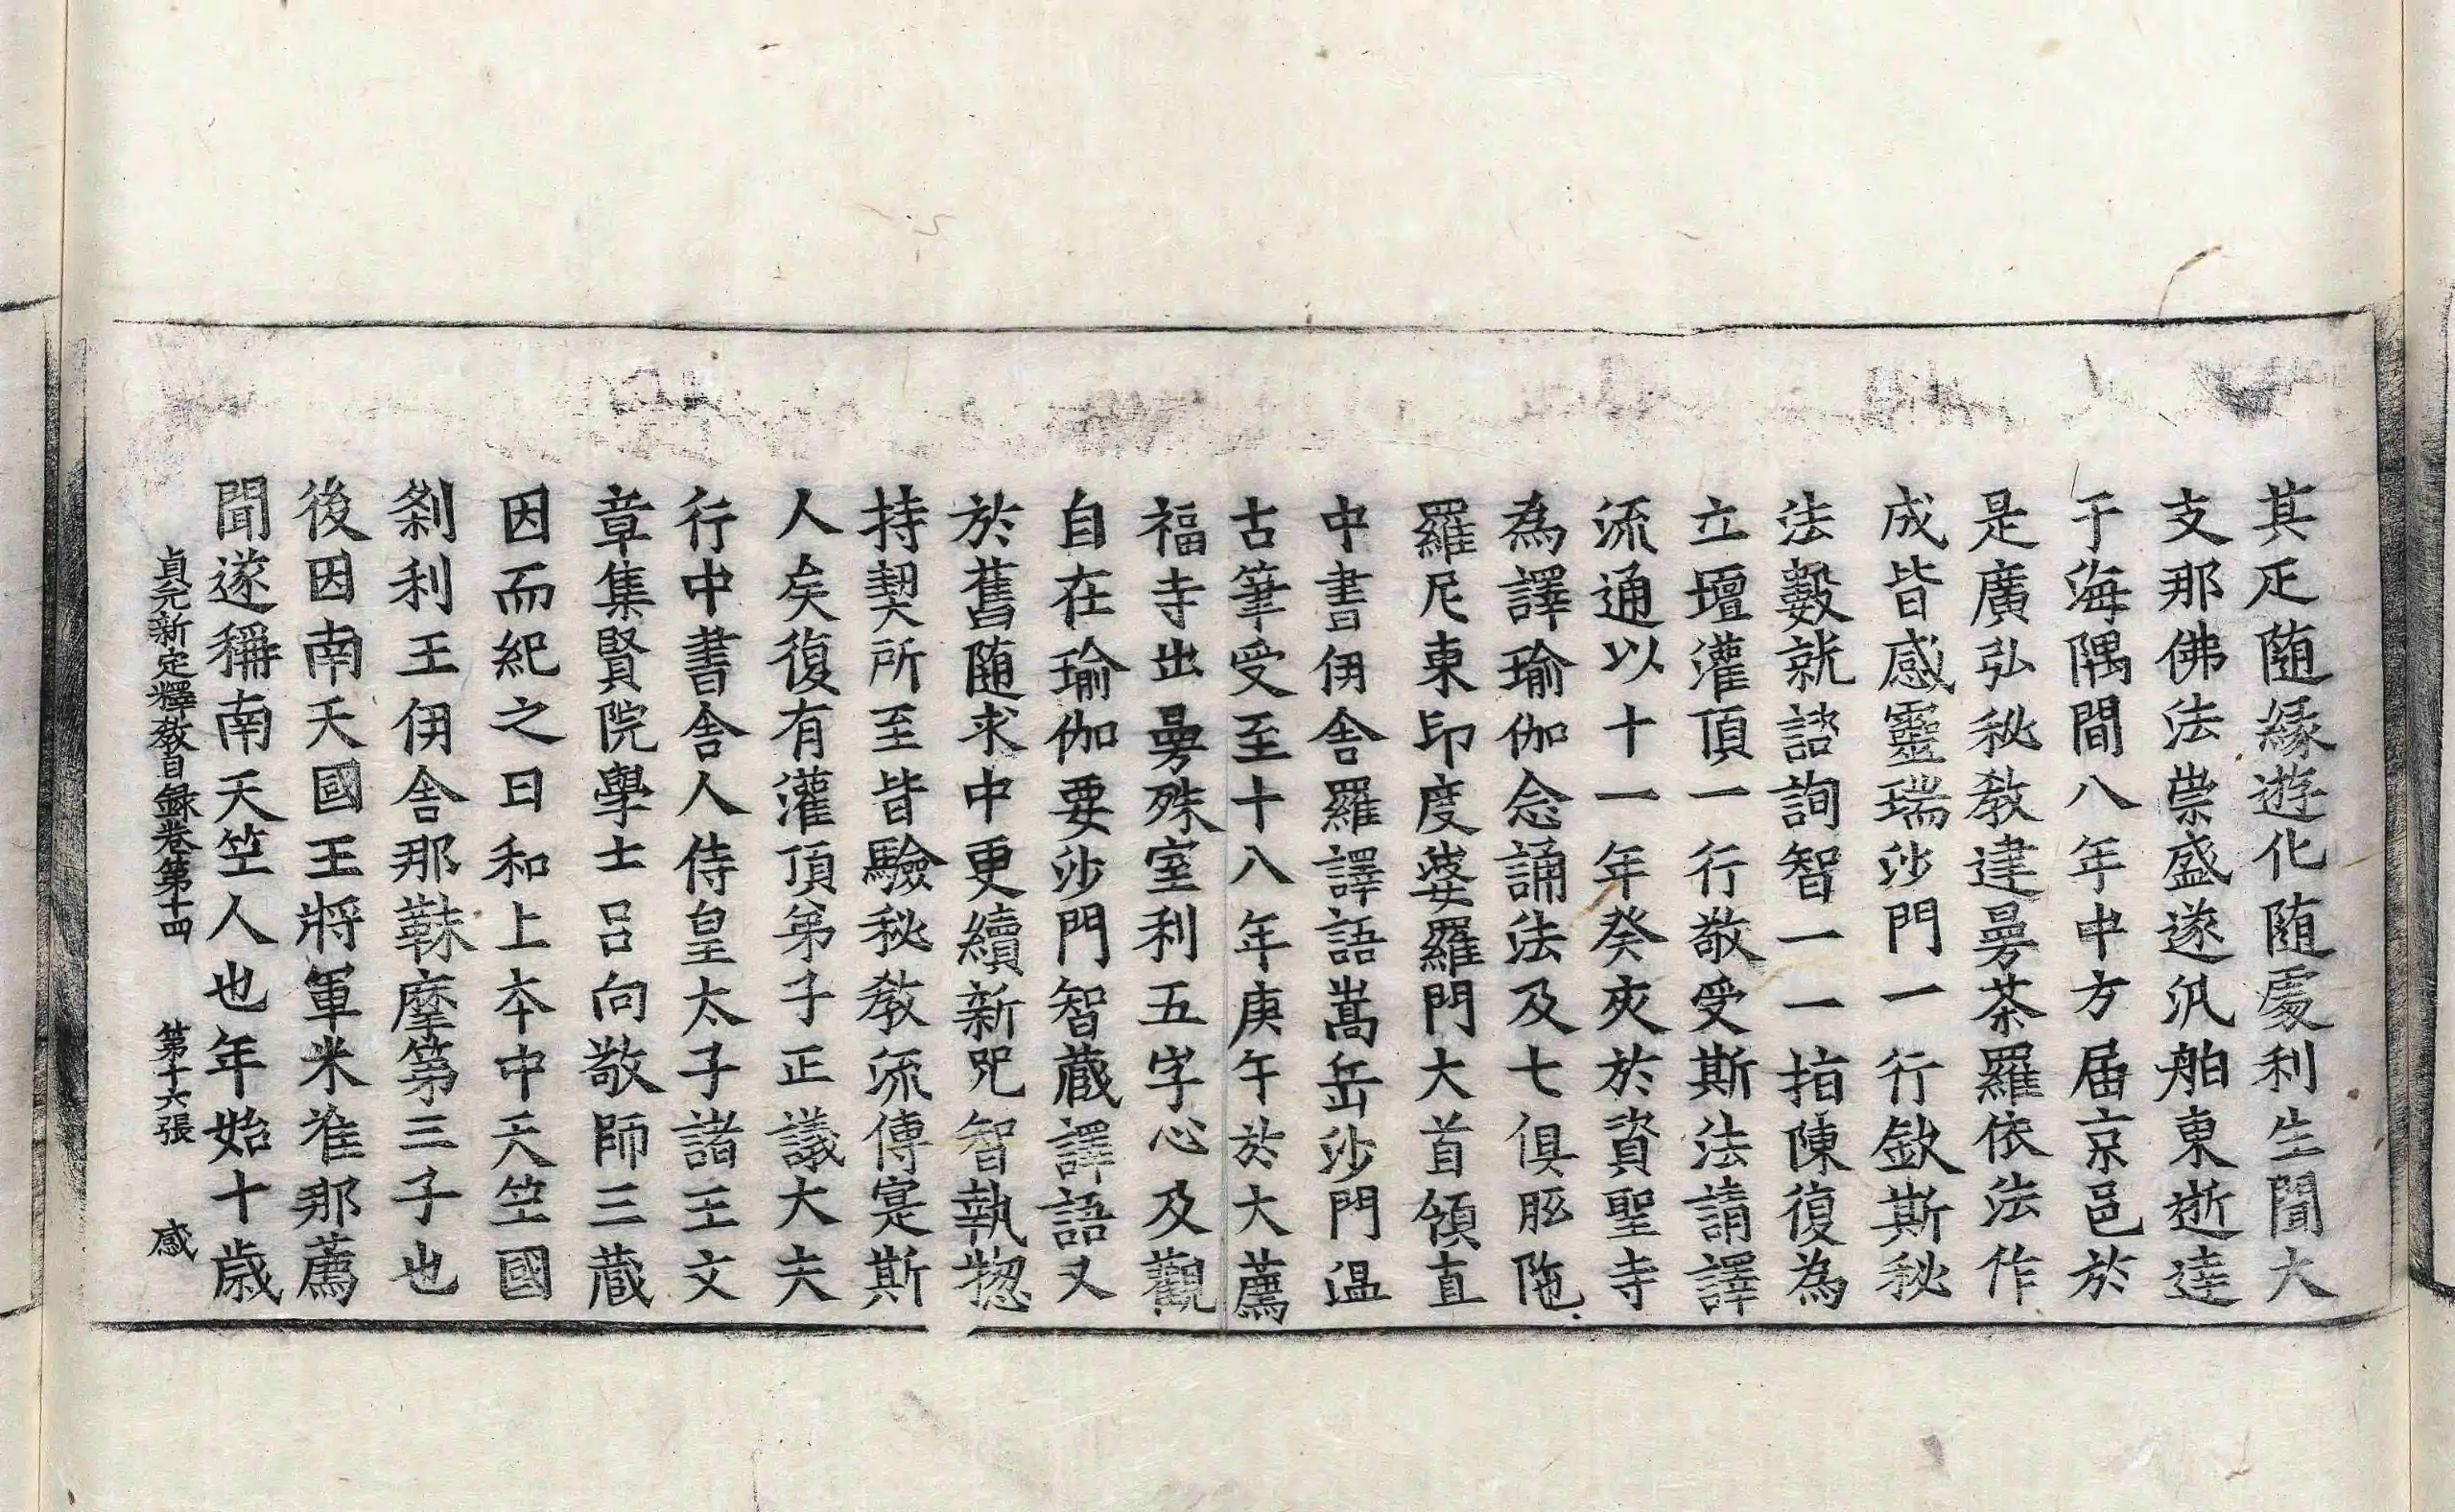 其疋随緣遊化随處利生聞大
支那佛法崇盛遂汎舶東逝達
于海隅間八年中方届京邑於
是廣弘秘教達曼荼羅依法作
成皆感靈瑞沙門一行欽斯秘
法數就諮詢智一一指陳復為
立壇灌頂一行敬受斯法請譯
流通以十一年癸亥於資聖寺
為譯瑜伽念誦法及七俱胝陁
羅尼東印度婆羅門大首領直
中書伊舍羅譯語嵩岳沙門溫
古筆受至十八年庚午於大薦
福寺出曼殊室利五字心及觀
自在瑜伽要沙門智藏譯語又
於舊随求中更續新咒智執惣
持契所至皆驗秘教流傳寔斯
人矣復有灌頂弟子正議大夫
行中書舍人侍皇太子諸王文
章集賢院學士呂向敬師三藏
因而紀之曰和上本中天竺國
刹利王伊舍那靺摩第三子也
後因南天國王將軍米准那薦
聞遂稱南天竺人也年始十歲
貞元新定釋教目錄卷第十四 第十六張 感